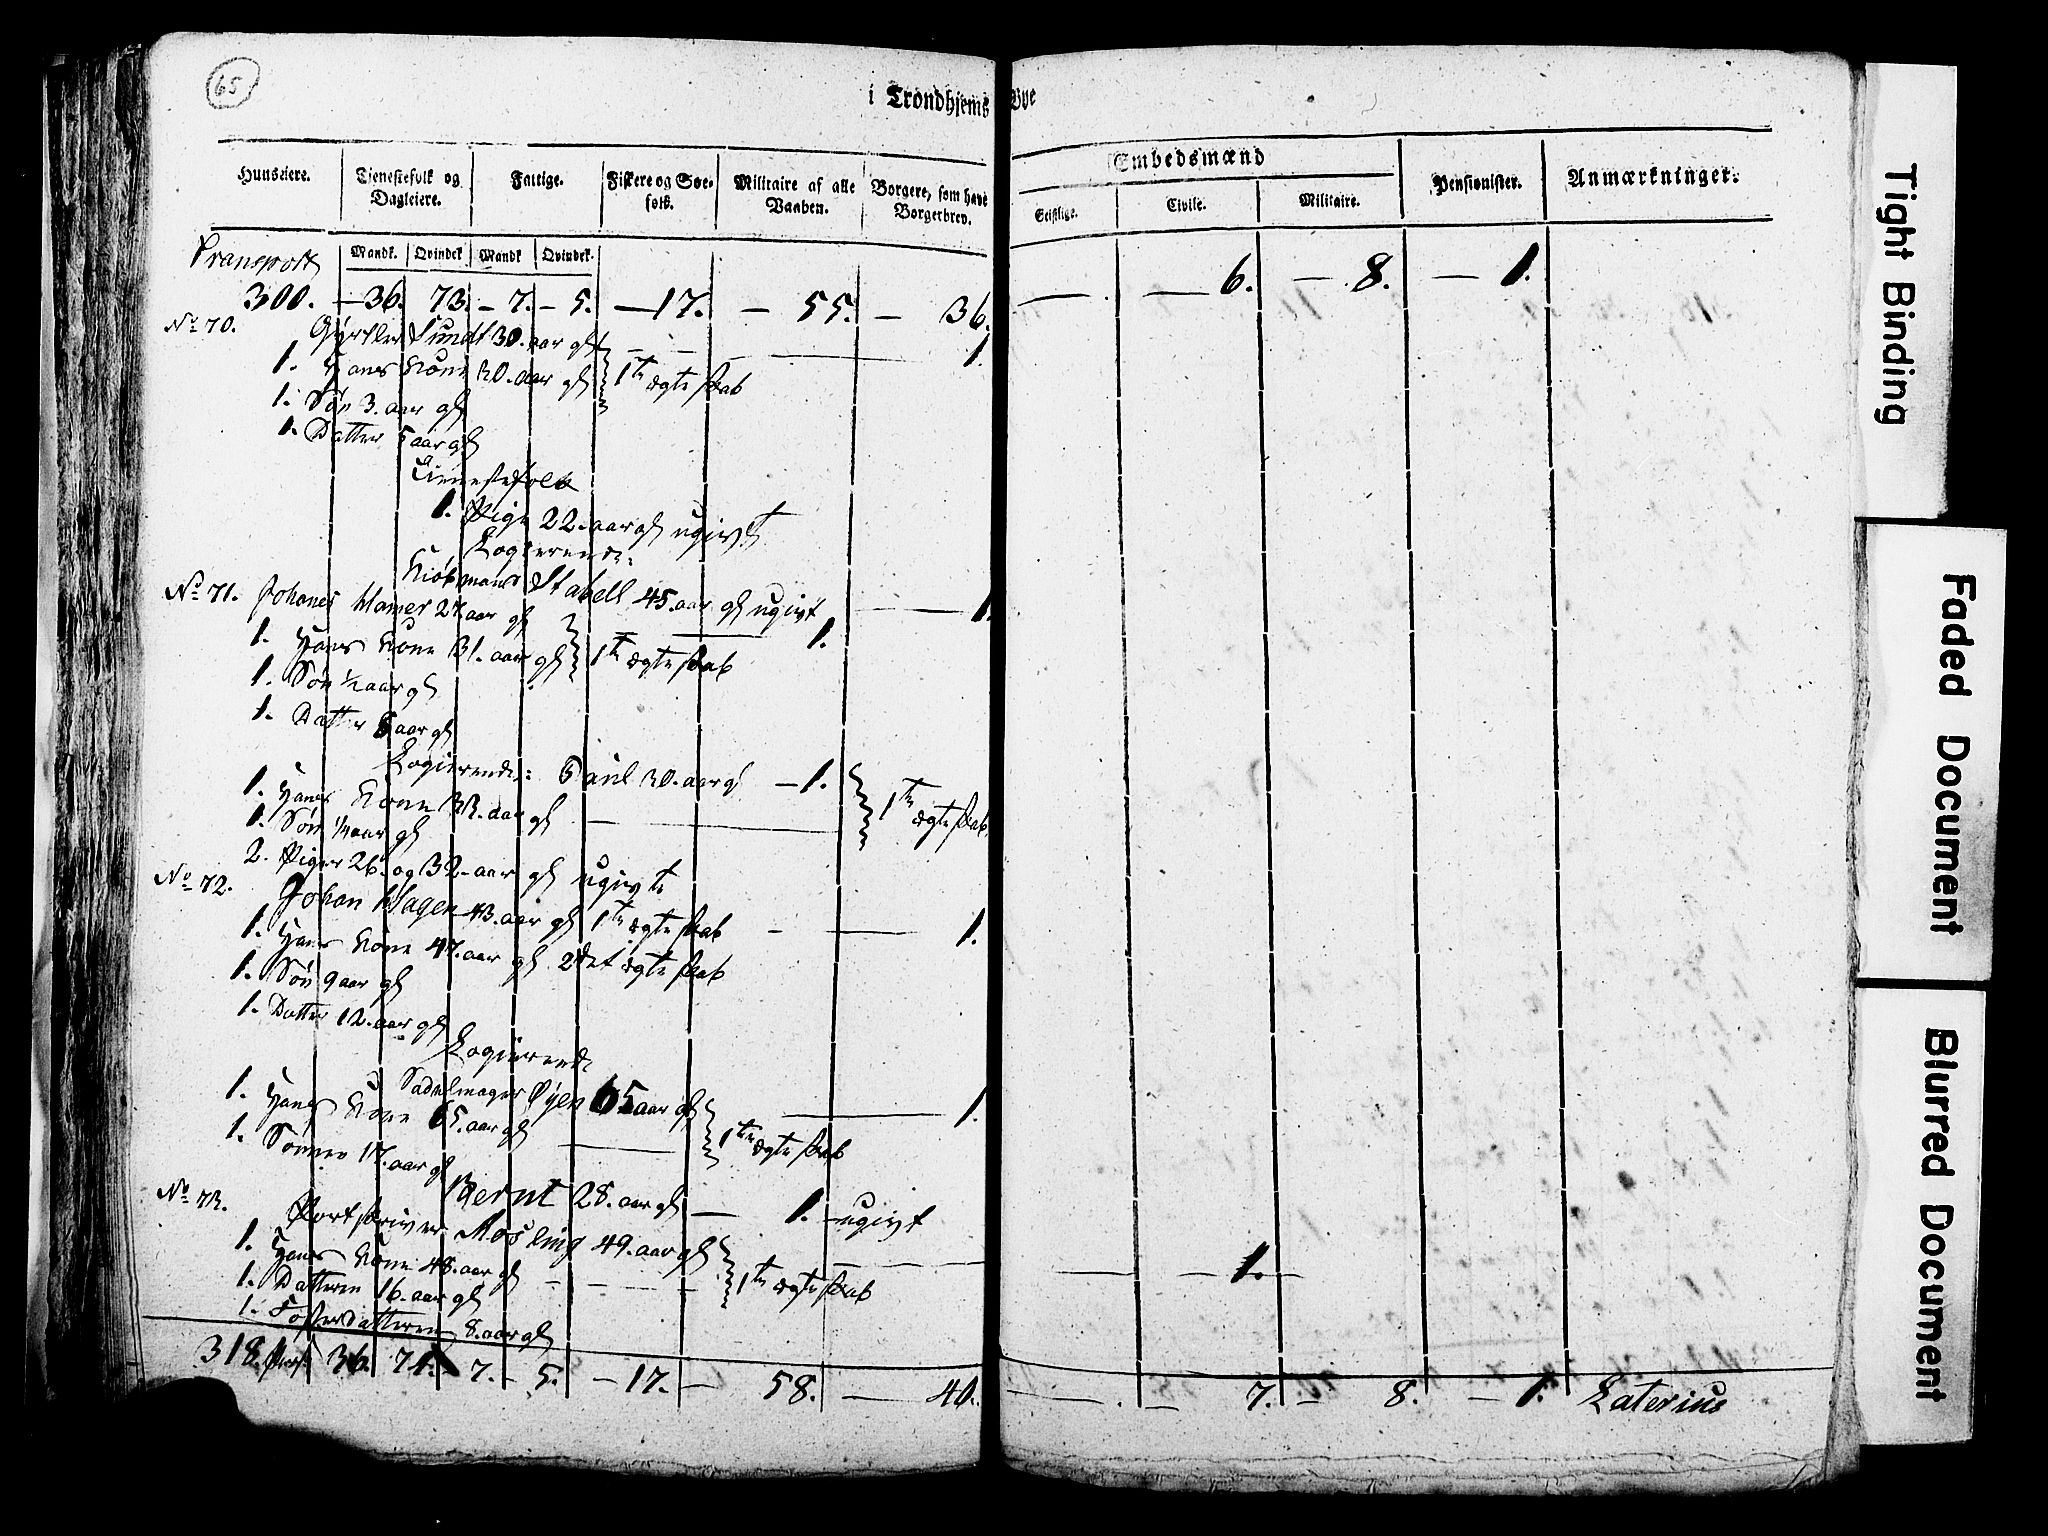 65
i Trondhjems Bye
Huuseiere.
Tienestefolk og Dagleiere.
Fattige.
Fiskere og Søe-folk.
Militaire af alle Vaaben.
Borgere, som have Borgerbrev.
Embedsmænd
Geistlige.
Civile.
Militaire.
Pensionister.
Anmærkninger.
Mandk. Qvindek Mandk Qvindek.
Transport
300. — 36. 73. — 7. — 5. — 17. — 55. — 36. — — 6. — 8. — 1.
No 70. Gjørtler Sundt 30. aar gl — — — 1
1. Hans Kone 30. aar gl 1te ægteskab
1. Søn 3. aar gl
1. Datter 5 aar gl
Tienestefolk
1. Pige 22. aar gl ugivt
Logierende:
Kiøbmand Stabell 45. aar gl ugivt — 1
No 71. Johanes Hamer 27. aar gl — 1.
1. Hans Kone 31. aar gl 1te ægteskab
1. Søn ½ aar gl
1. Datter 6 aar gl
Logierende: Paul 30. aar gl — 1.
1. Hans Kone 33. aar gl — 1te ægteskab
1. Søn ¼ aar gl
2. Piger 26. og 32. aar gl ugivte
No 72. Johan Hagen 43. aar gl 1te ægteskab — — 1.
1. Hans Kone 47. aar gl 2det ægteskab
1. Søn 9 aar gl
1. Datter 12. aar gl
Logierende
Sadelmager Øyen 65 aar gl — 1.
1. Hans Kone 65. aar gl — 1te ægteskab
1. Sønnen 17. aar gl
Bernt 28. aar gl — 1. ugivt
No 73. Portskriver Mosling 49. aar gl — — 1. —
1. Hans Kone 48. aar gl — 1te ægteskab
1. Datteren 16. aar gl
1. Fosterdatteren 8. aar gl
318. 36. 74. 7. — 5. — 17. — 58. — 40. — — 7. — 8. — 1. Laterius
Tight Binding
Faded Document
Blurred Document